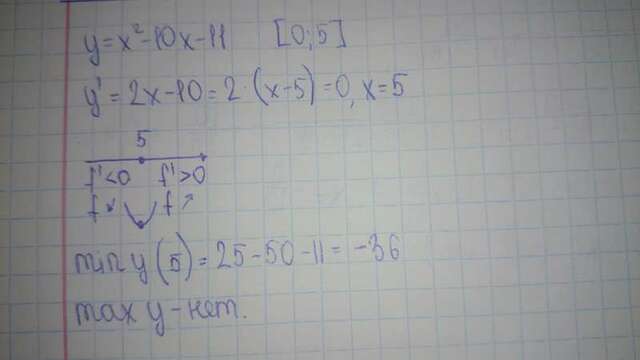 y=x²-10x-11 [0;5]
y'=2x-10=2·(x-5)=0, x=5
5
f'<0 f'>0
f↘ f↗
min y(5)=25-50-11=-36
max y-нет.